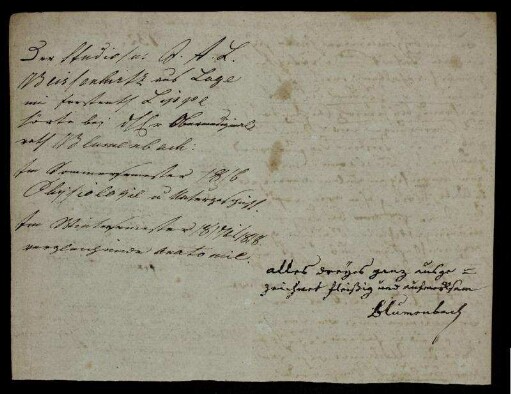 Der Studiosus F. A. L.
Weissenborn aus Lage
im Fürstenth Lippe
hörte bei dH. Obermedizinal
rath Blumenbach:
Im Sommersemester 1816
Physiologie u Naturgeschicht.
Im Wintersemester 1817/1818
vergleichende Anatomie.
alles dreyes ganz ausge=
zeichnet fleißig und aufmerksam
Blumenbach